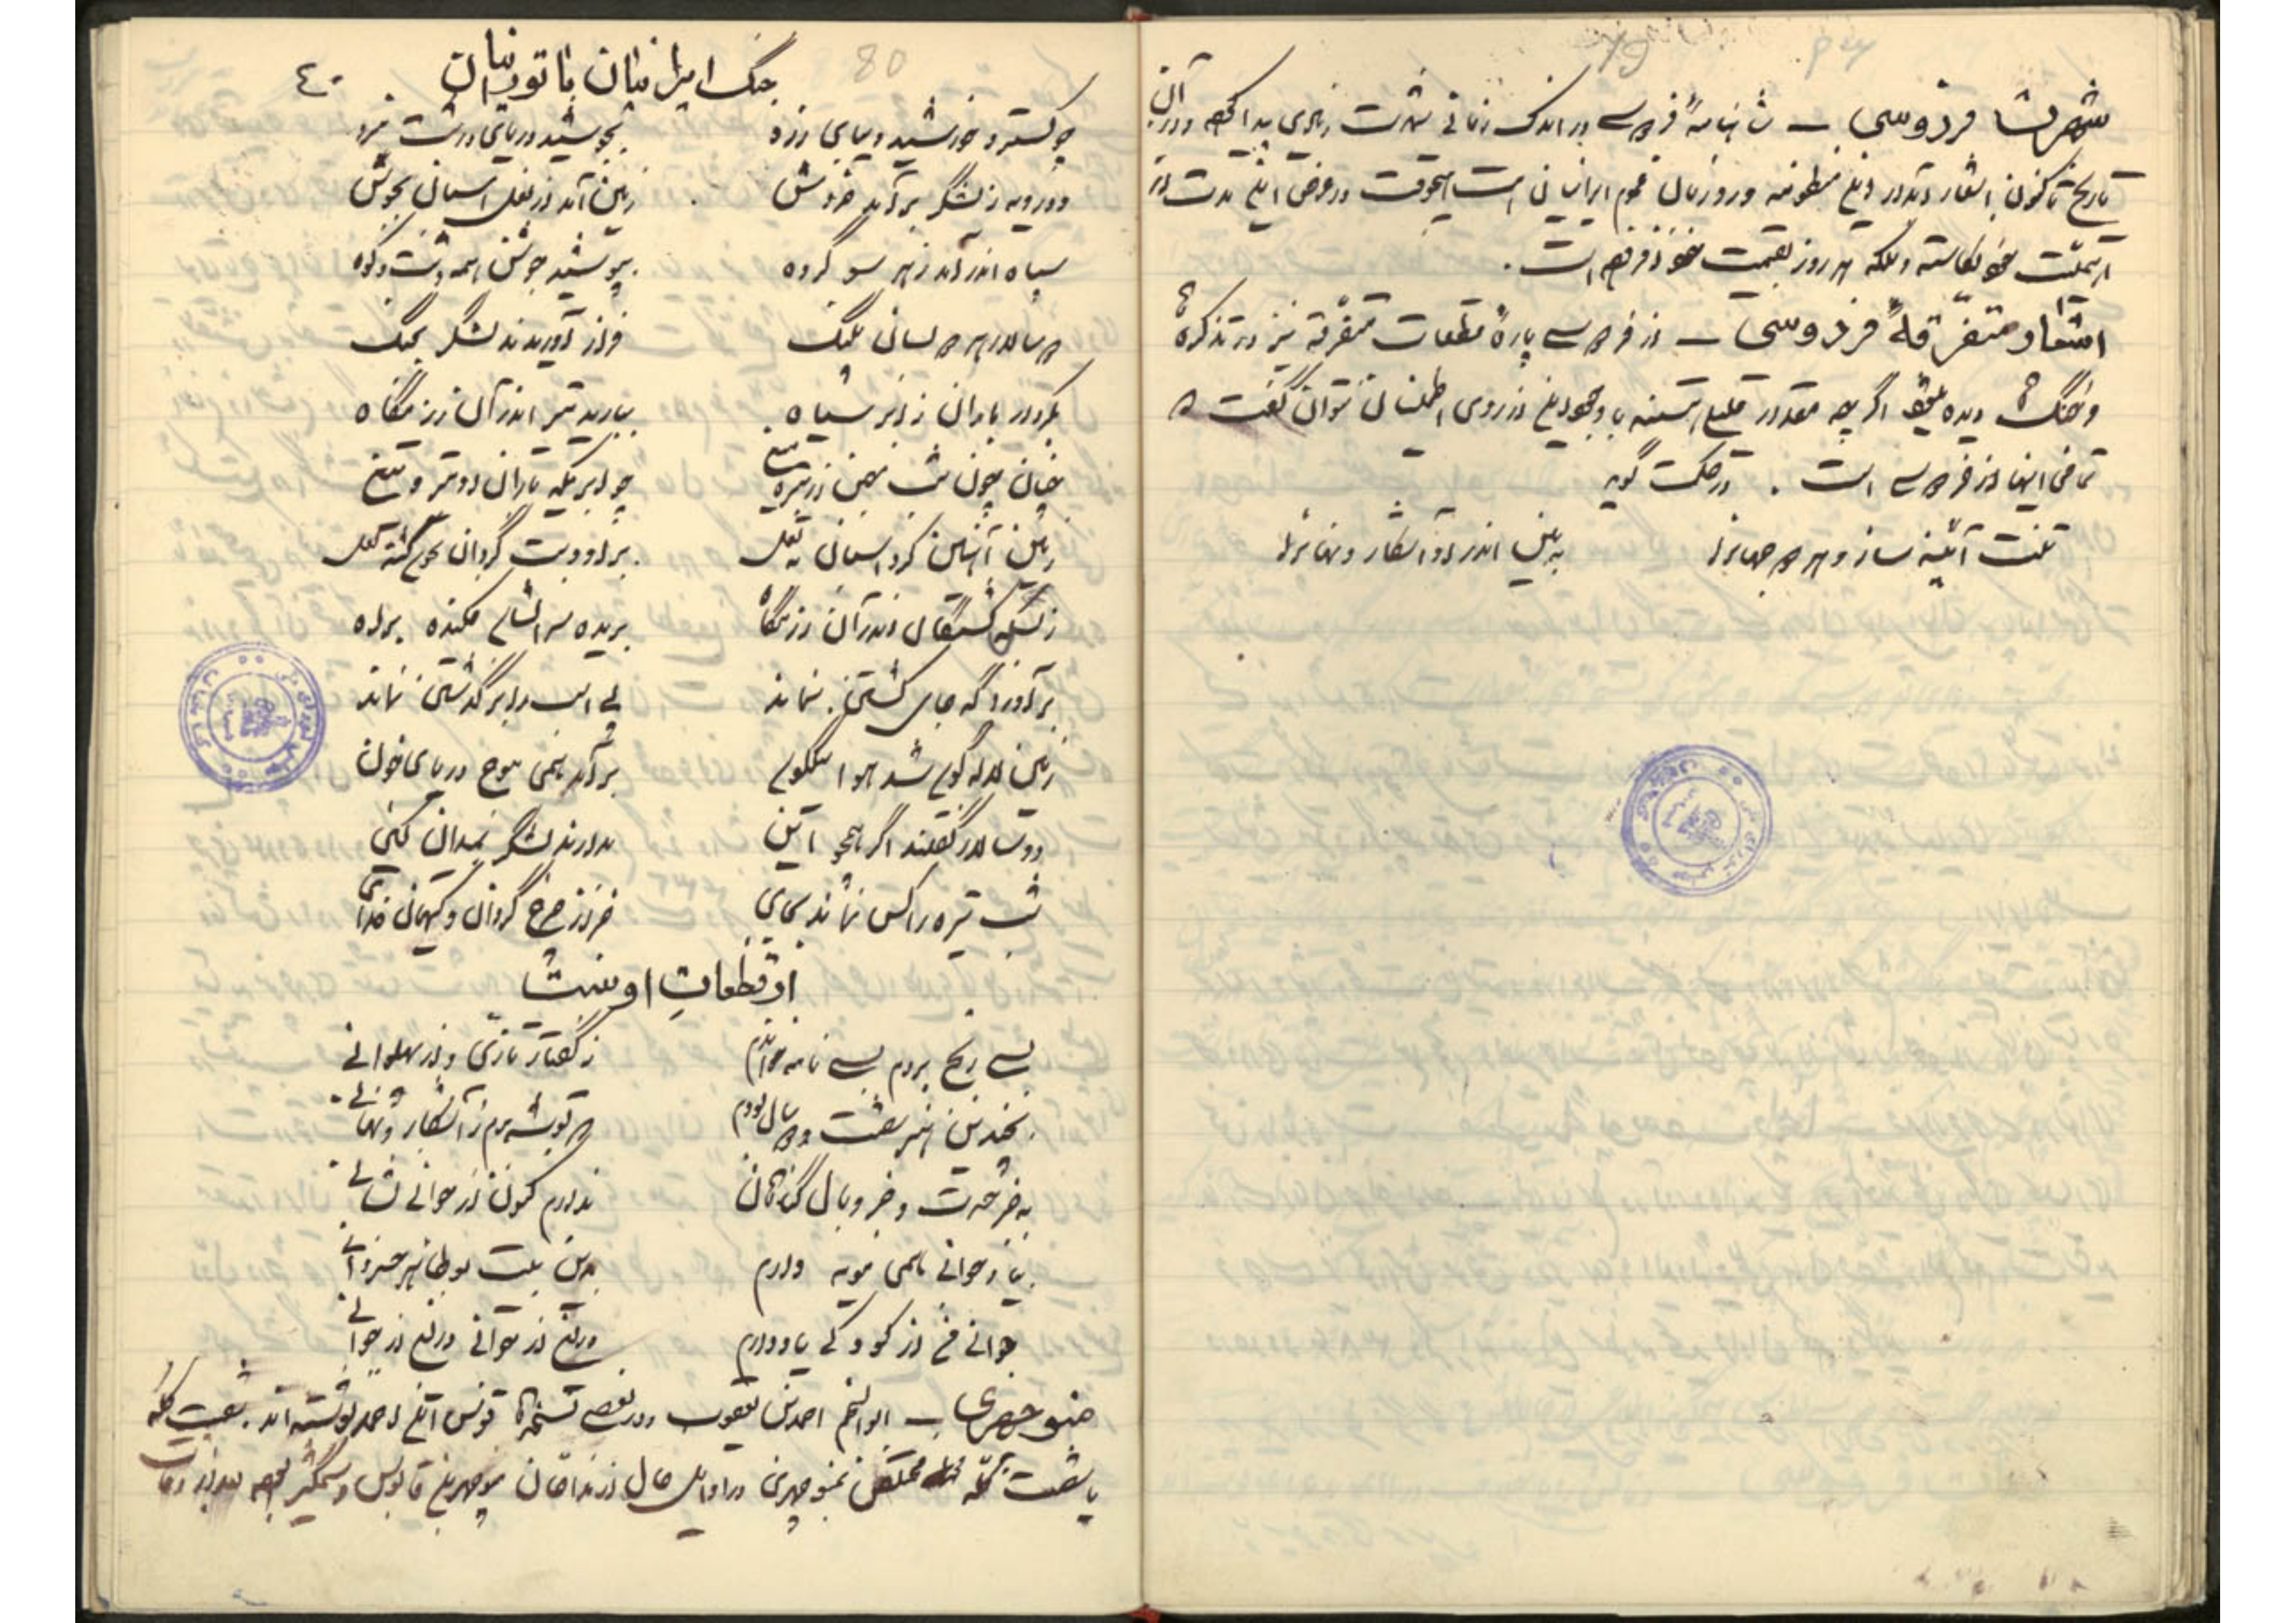 شهرت فردوسی ـ شاهنامهٔ فردوسی در اندک زمانی شهرت زیادی پیدا کرده و از آن
تاریخ تاکنون اشعار این منظومه ورد زبان عموم ایرانیان است هیچوقت در عرض این مدت از
اهمیت خود نکاسته و بلکه هر روز بقیمت خود افزوده است.
اشعار متفرقهٔ فردوسی ـ از فردوسی پارهٔ قطعات متفرقه نیز در تذکره‌ها
و فرهنگ‌ها دیده میشود اگر چه مقدار قلیلی هستند با وجود این از روی اطمینان نتوان گفت که
تمامی اینها از فردوسی است. در حکمت گوید
تنت آینه ساز و هر دو جهان را
به بین اندر او آشکار و نهان را
79
80
جنگ ایرانیان با تورانیان
٤٠
چو گسترد خورشید دیبای زرد
بجوشید دریای دشت نبرد
دو رویه ز لشگر برآمد خروش
زمین آمد از نعل اسبان بجوش
سپاه اندر آمد ز هر سو گروه
بپوشید جوشن همه دشت و کوه
دو سالار هر دو بسان پلنگ
فراز آوریدند لشگر بجنگ
بکردار باران ز ابر سیاه
ببارید تیر اندر آن رزمگاه
جهان چون شب بهمن از تیره میغ
چو ابری که باران او تیر و تیغ
زمین آهنین کرد اسبان به نعل
بر و دست گردان بخون گشته لعل
ز بس کشتگان اندر آن رزمگاه
بریده سرانشان فکنده براه
برآوردگه جای گشتن نماند
پی اسب را برگذشتن نماند
زمین لاله گون شد هوا نیلگون
برآمد همی موج دریای خون
دو سالار گفتند اگر همچو این
بدارند لشگر بمیدان کین
شب تیره را کس نماند بجای
جز از چرخ گردان و کیهان خدای
از قطعات اوست
بسی رنج بردم بسی نامه خواندم
ز گفتار تازی و از پهلوانی
بچندین هنر شصت و دو سال بودم
که توشه برم ز آشکار و نهانی
به جز حسرت و جز وبال گناهان
ندارم کنون از جوانی نشانی
بیاد جوانی همی مویه دارم
بدین بیت بوطاهر خسروانی
جوانی من از کودکی یاد دارم
دریغ از جوانی دریغ از جوانی
منوچهری ـ ابوالنجم احمد بن یعقوب و در بعضی نسخه‌ها قوس ابن احمد نوشته‌اند. شصت کله
یا شصت گله متخلص بمنوچهری در اوایل حال از مداحان منوچهر بن قابوس وشمگیر بوده بعد از وفات